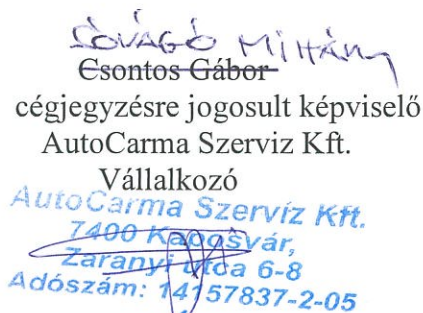 SÓVÁGÓ MIHÁLY
Csontos Gábor
cégjegyzésre jogosult képviselő
AutoCarma Szerviz Kft.
Vállalkozó
AutoCarma Szerviz Kft.
7400 Kaposvár,
Zaranyi utca 6-8
Adószám: 14157837-2-05